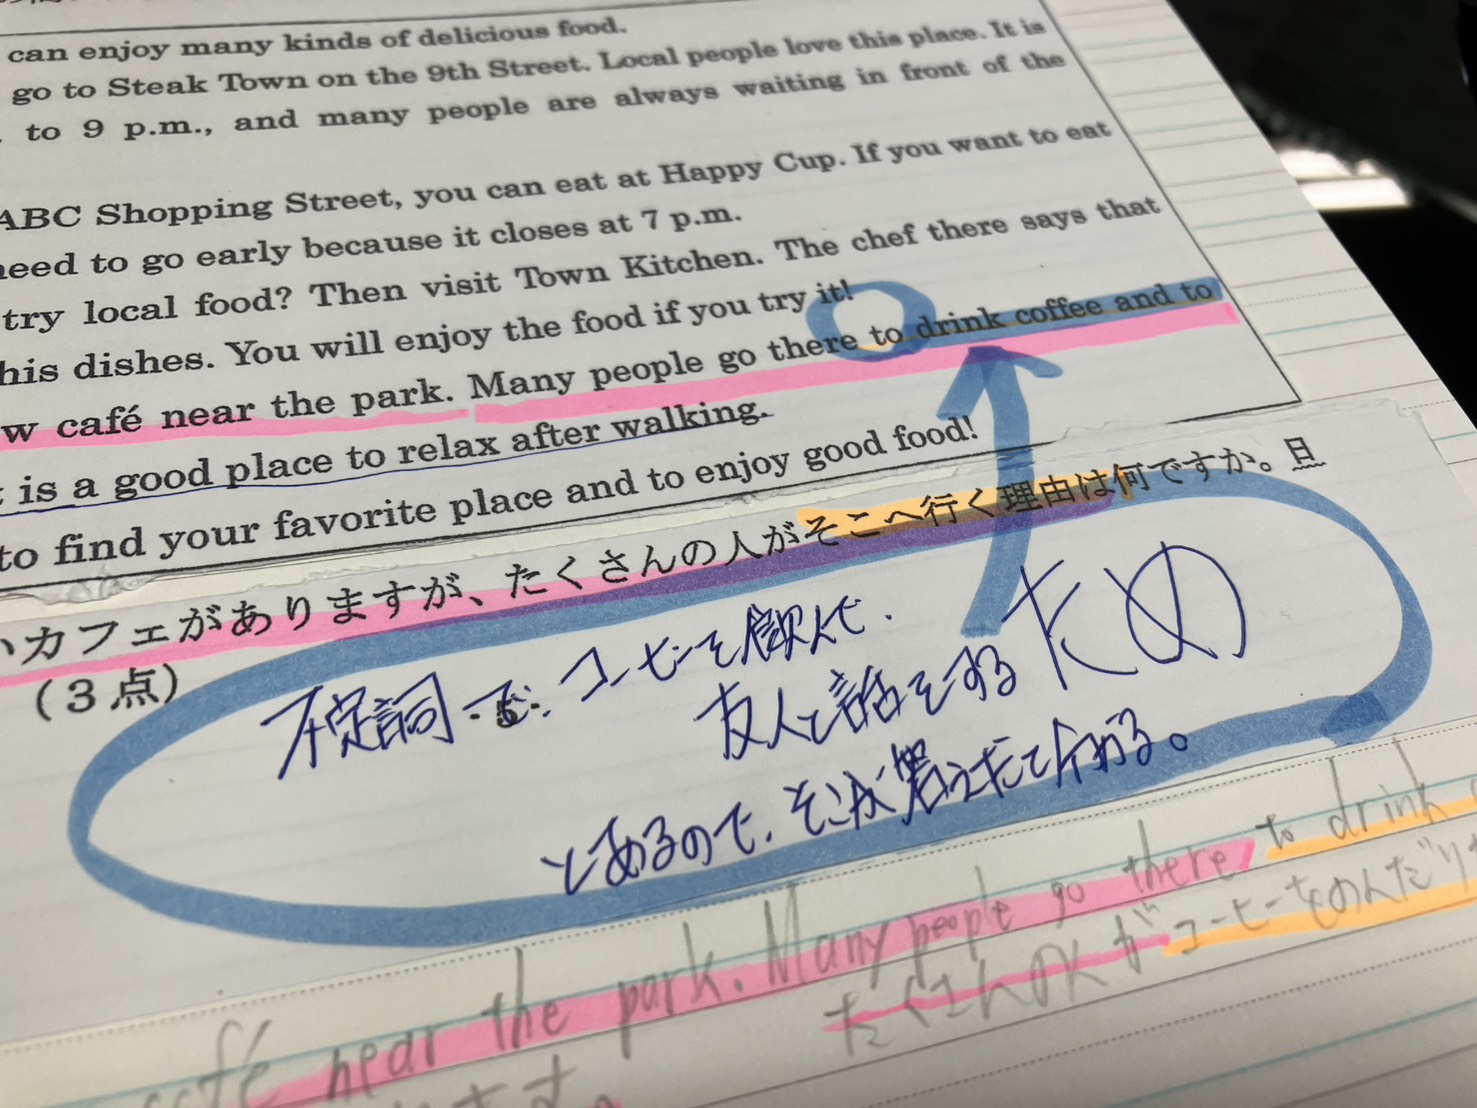 can enjoy many kinds of delicious food.
go to Steak Town on the 9th Street. Local people love this place. It is
to 9 p.m., and many people are always waiting in front of the
ABC Shopping Street, you can eat at Happy Cup. If you want to eat
need to go early because it closes at 7 p.m.
try local food? Then visit Town Kitchen. The chef there says that
his dishes. You will enjoy the food if you try it!
w café near the park. Many people go there to drink coffee and to
is a good place to relax after walking.
to find your favorite place and to enjoy good food!
いカフェがありますが、たくさんの人がそこへ行く理由は何ですか。具
(3点)
不定詞で、コーヒーを飲んで、
友人と話をするため
とあるので、そこが答えだと分かる。
café near the park. Many people go there to drink
たくさんの人がコーヒーをのんだり
ます。